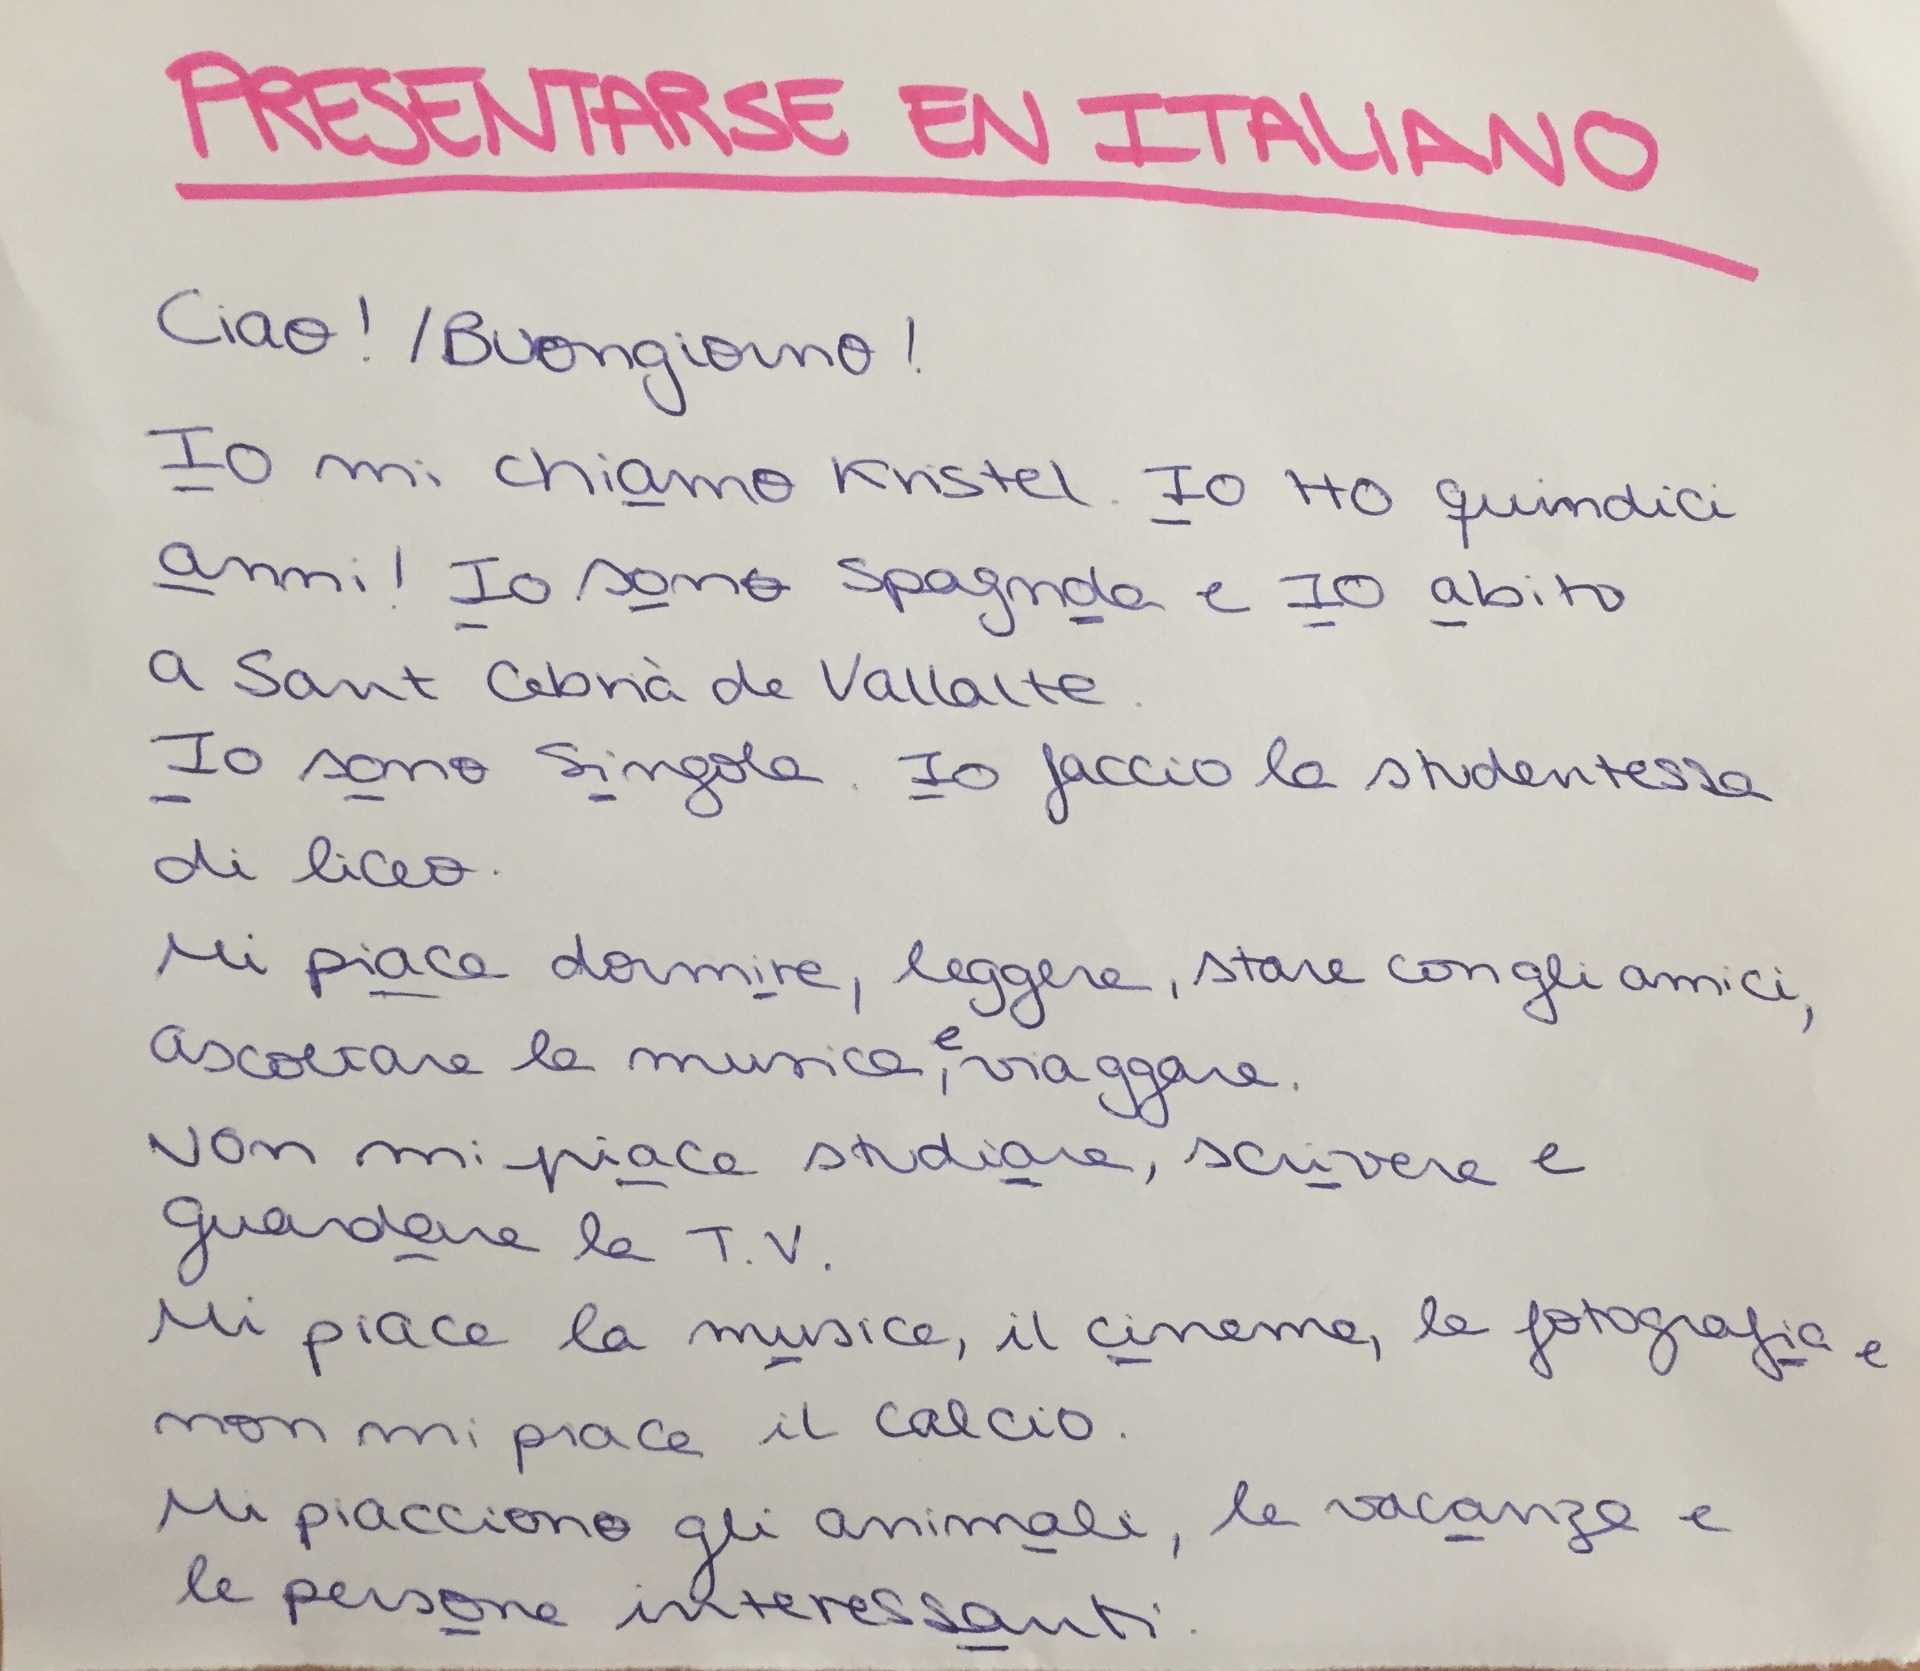 PRESENTARSE EN ITALIANO
Ciao! /Buongiorno!
Io mi chiamo Kristel. Io Ho quindici
anni! Io sono spagnola e Io abito
a Sant Cebrià de Vallalte.
Io sono Singola. Io faccio la studentessa
di liceo.
Mi piace dormire, leggere, stare con gli amici,
ascoltare la musica, e viaggare.
Non mi piace studiare, scrivere e
guardare la T.V.
Mi piace la musica, il cinema, la fotografia e
non mi piace il calcio.
Mi piacciono gli animali, le vacanze e
le persone interessanti.